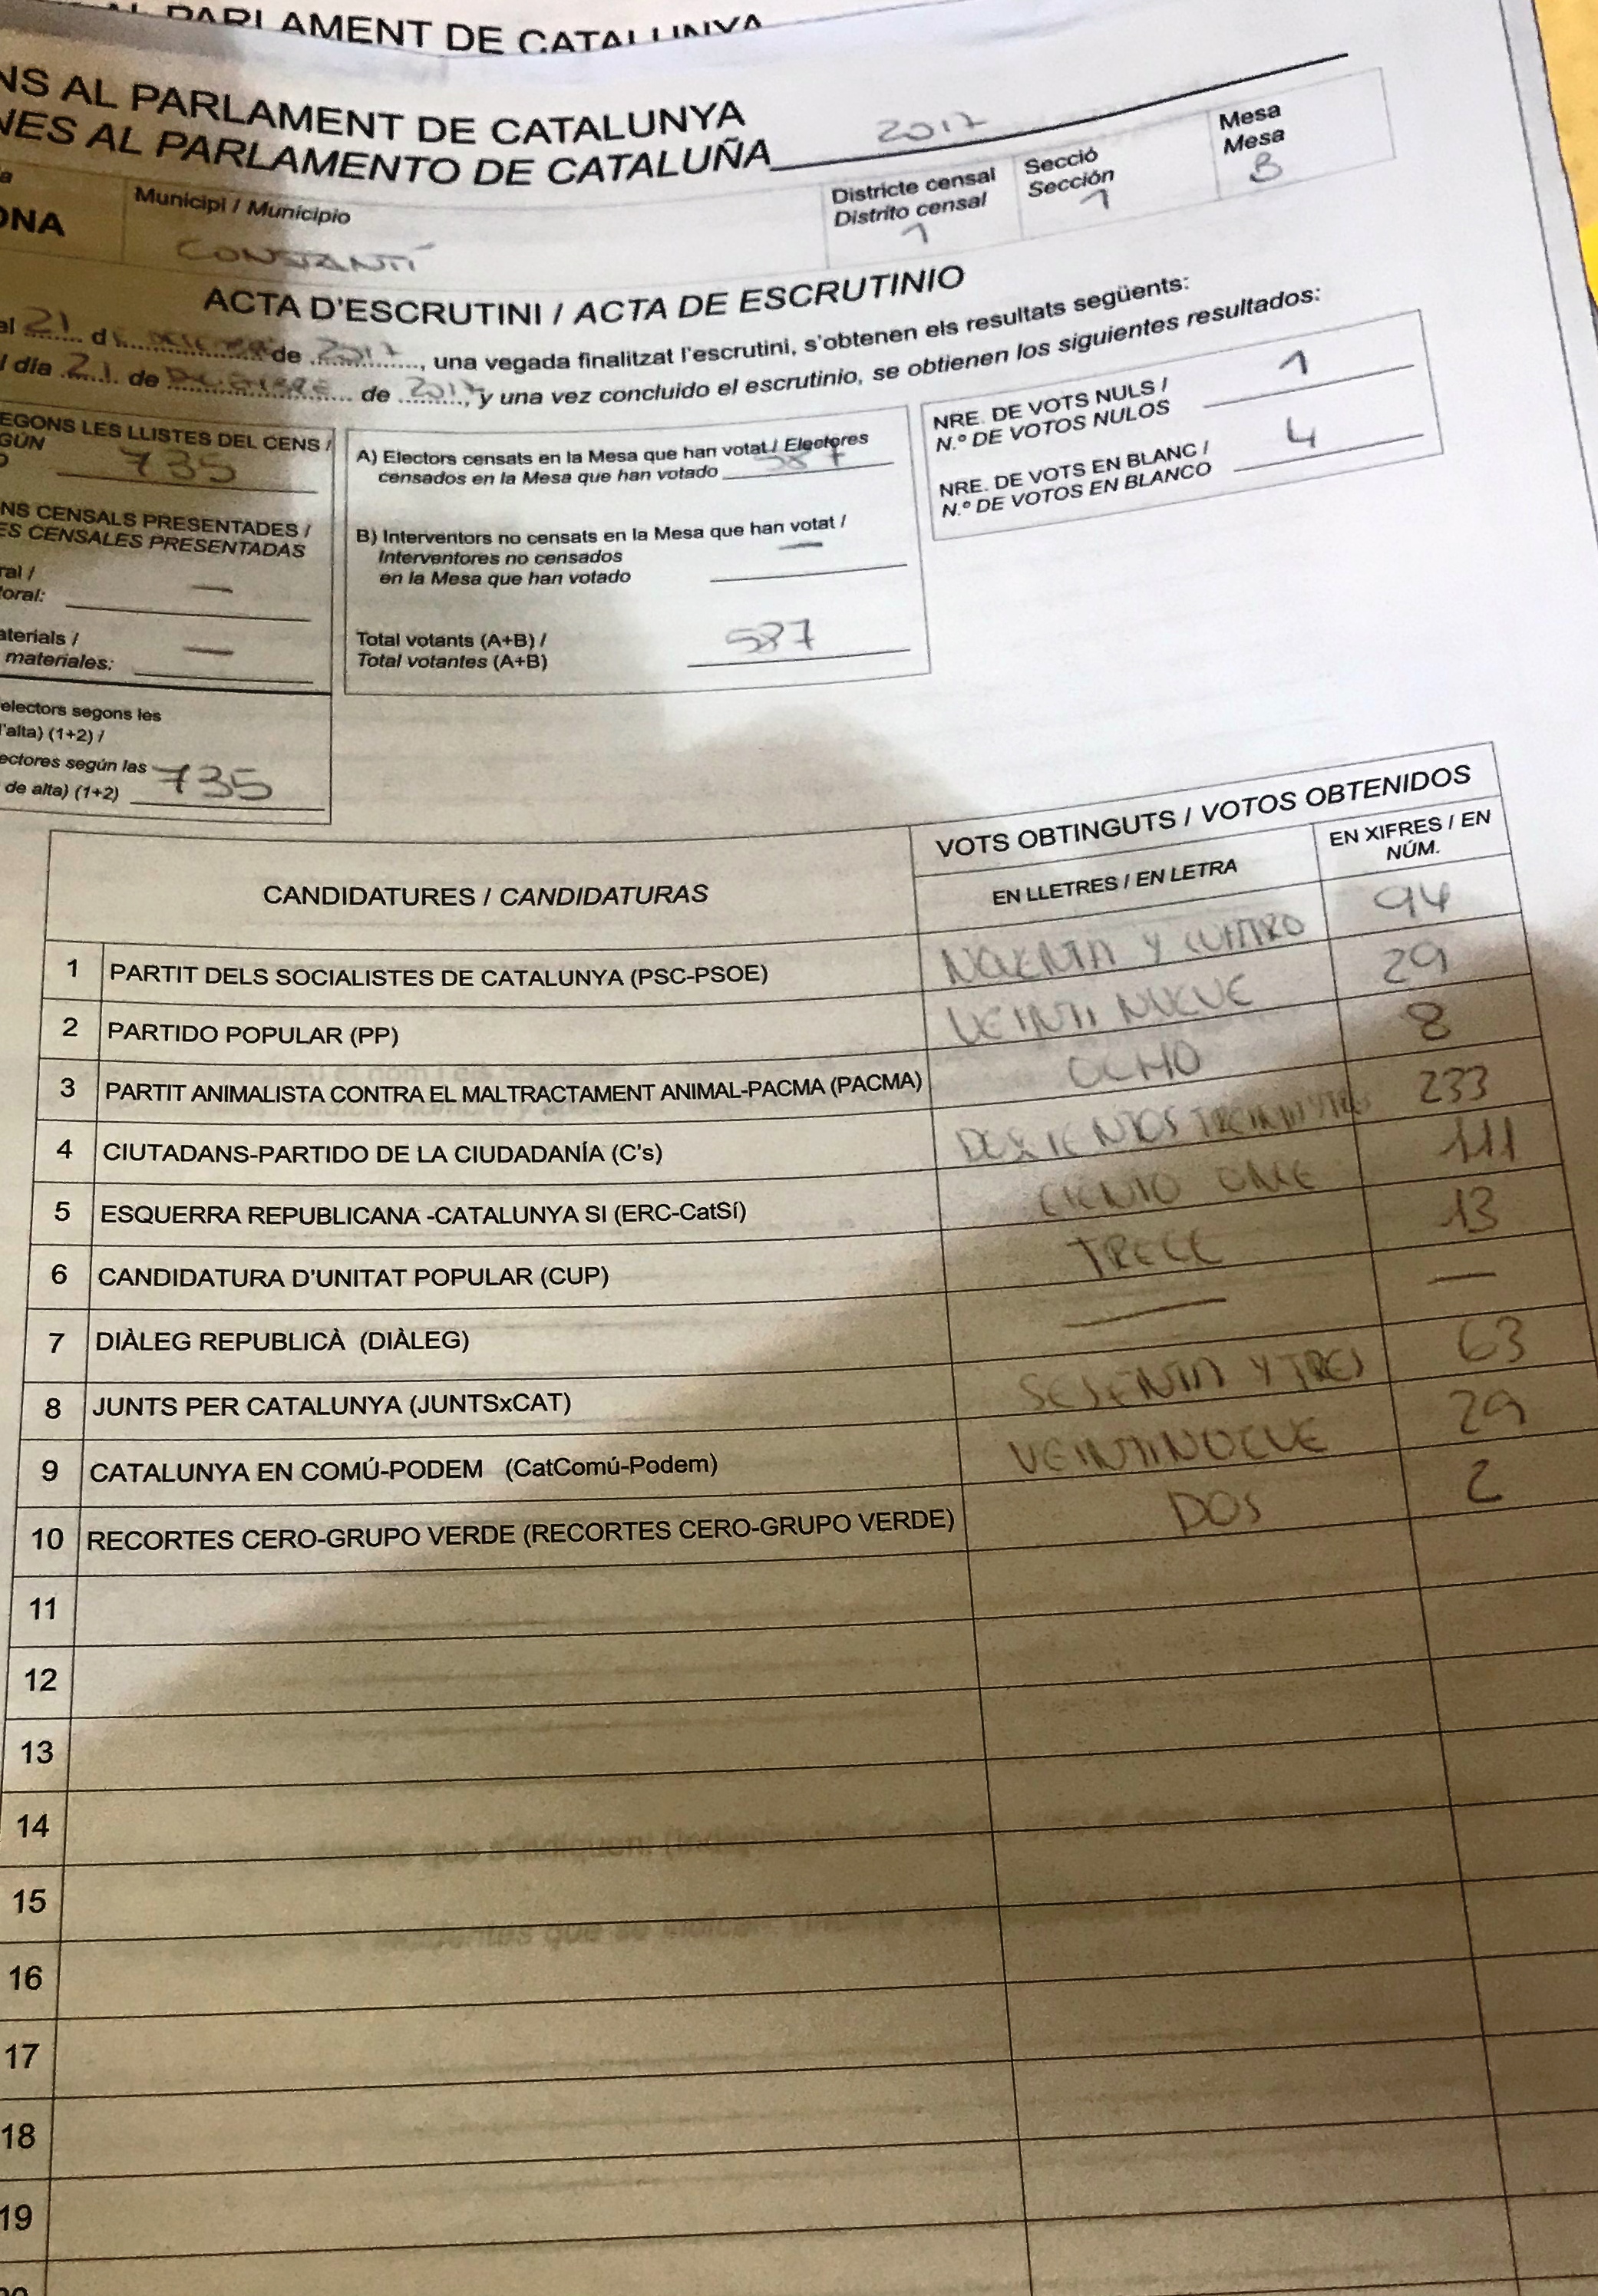 PARLAMENT DE CATALUNYA
NS AL PARLAMENT DE CATALUNYA
NES AL PARLAMENTO DE CATALUÑA 2017
Municipi / Municipio
Districte censal
Distrito censal
Secció
Sección
Mesa
Mesa
ONA
CONSTANTÍ
1
1
B
ACTA D'ESCRUTINI / ACTA DE ESCRUTINIO
al 21 de de 2017, una vegada finalitzat l'escrutini, s'obtenen els resultats següents:
día 21 de de 2017, y una vez concluido el escrutinio, se obtienen los siguientes resultados:
EGONS LES LLISTES DEL CENS /
GÚN
735
NS CENSALS PRESENTADES /
ES CENSALES PRESENTADAS
ral /
toral: —
aterials /
materiales: —
electors segons les
l'alta) (1+2) /
ectores según las
de alta) (1+2) 735
A) Electors censats en la Mesa que han votat / Electores
censados en la Mesa que han votado 587
B) Interventors no censats en la Mesa que han votat /
Interventores no censados
en la Mesa que han votado —
Total votants (A+B) /
Total votantes (A+B) 587
NRE. DE VOTS NULS /
N.º DE VOTOS NULOS 1
NRE. DE VOTS EN BLANC /
N.º DE VOTOS EN BLANCO 4
CANDIDATURES / CANDIDATURAS
VOTS OBTINGUTS / VOTOS OBTENIDOS
EN LLETRES / EN LETRA
EN XIFRES / EN
NÚM.
1 PARTIT DELS SOCIALISTES DE CATALUNYA (PSC-PSOE) NOVENTA Y CUATRO 94
2 PARTIDO POPULAR (PP) VEINTI NUEVE 29
3 PARTIT ANIMALISTA CONTRA EL MALTRACTAMENT ANIMAL-PACMA (PACMA) OCHO 8
4 CIUTADANS-PARTIDO DE LA CIUDADANÍA (C's) DOSCIENTOS TREINTA Y TRES 233
5 ESQUERRA REPUBLICANA -CATALUNYA SI (ERC-CatSí) CIENTO ONCE 111
6 CANDIDATURA D'UNITAT POPULAR (CUP) TRECE 13
7 DIÀLEG REPUBLICÀ (DIÀLEG) — —
8 JUNTS PER CATALUNYA (JUNTSxCAT) SESENTA Y TRES 63
9 CATALUNYA EN COMÚ-PODEM (CatComú-Podem) VEINTINUEVE 29
10 RECORTES CERO-GRUPO VERDE (RECORTES CERO-GRUPO VERDE) DOS 2
11
12
13
14
15
16
17
18
19